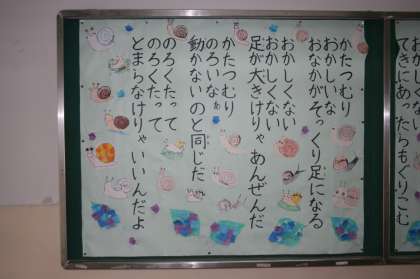 かたつむり
おかしいな
おなかがそっくり足になる
おかしくない
おかしくない
足が大きけりゃあんぜんだ
かたつむり
のろいなぁ
動かないのと同じだ
のろくたって
のろくたって
とまらなけりゃいいんだよ
てきにあったらもぐりこむ